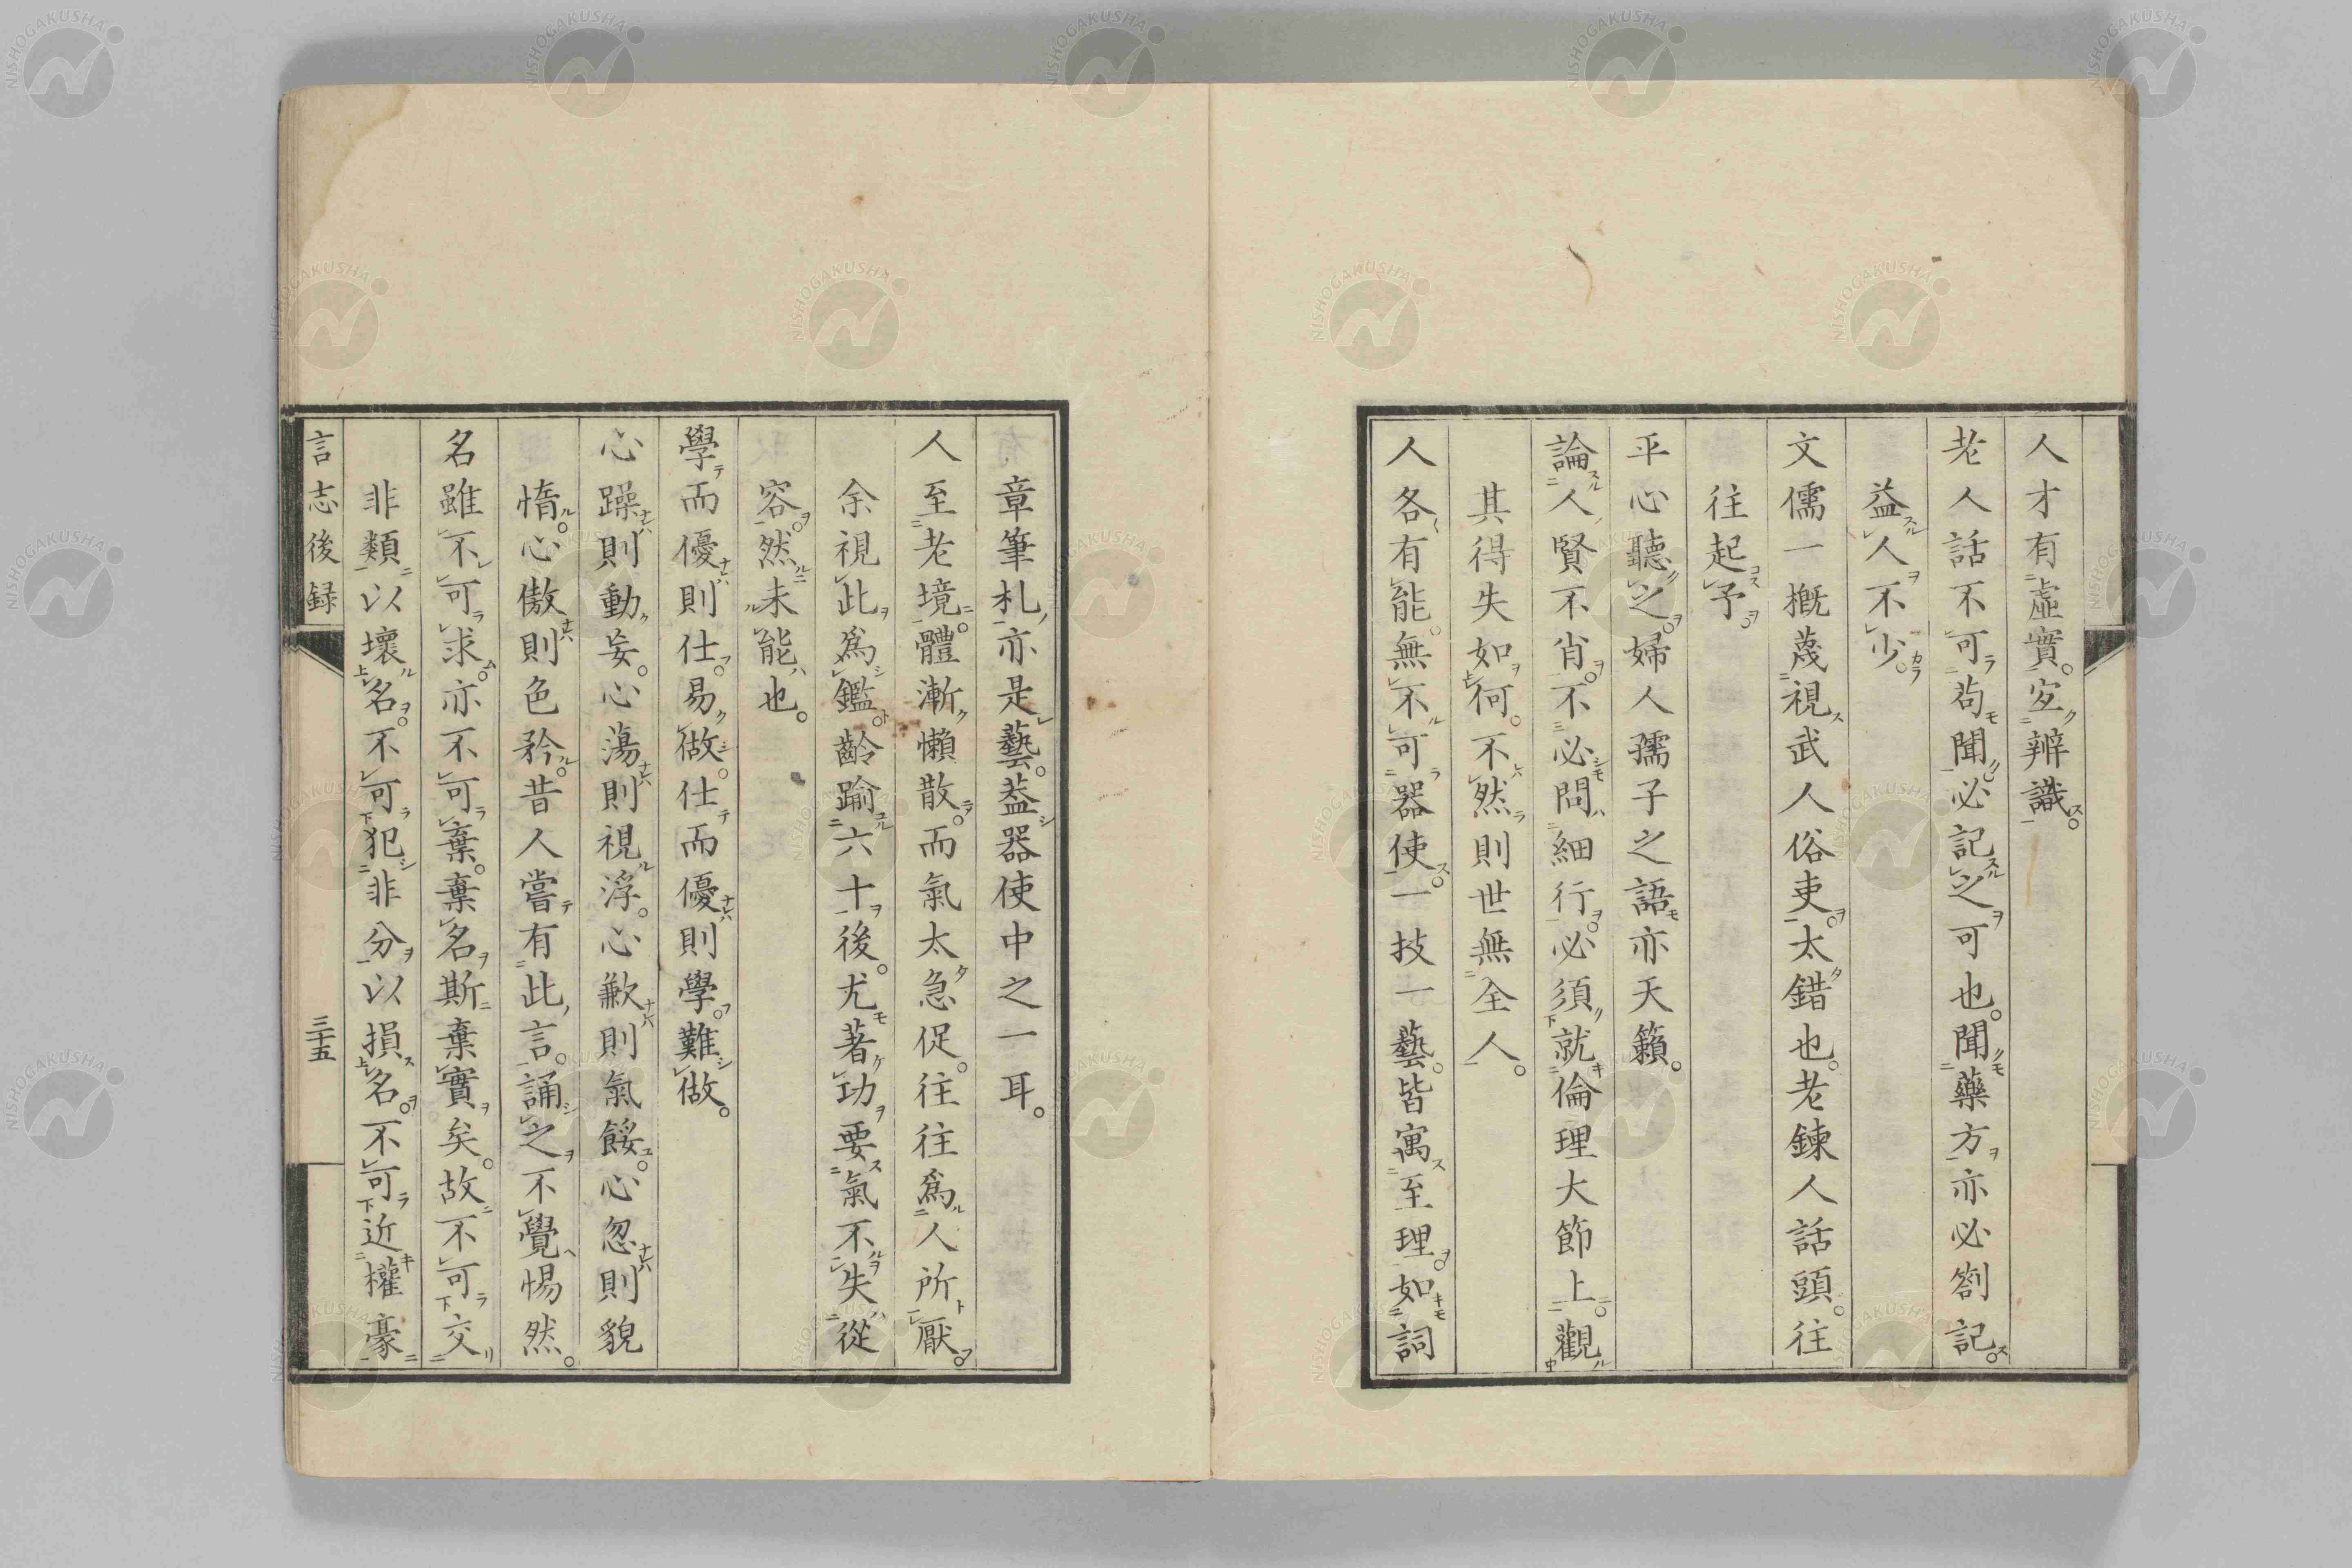 人才有虛實。宜辨識。
老人話不可苟聞。必記之可也。聞藥方亦必劄記。
益人不少。
文儒一概蔑視武人俗吏。太錯也。老鍊人話頭。往
往起予。
平心聽之。婦人孺子之語亦天籟。
論人賢不肖。不必問細行。必須就倫理大節上。觀
其得失如何。不然則世無全人。
人各有能。無不可器使。一技一藝。皆寓至理。如詞
章筆札。亦是藝。蓋器使中之一耳。
人至老境。體漸懶散。而氣太急促。往往爲人所厭。
余視此爲鑑。齡踰六十後。尤著功。要氣不失從
容。然未能也。
學而優則仕。易做。仕而優則學。難做。
心躁則動妄。心蕩則視浮。心歉則氣餒。心忽則貌
惰。心傲則色矜。昔人嘗有此言。誦之不覺惕然。
名雖不可求。亦不可棄。棄名斯棄實矣。故不可交
非類以壞名。不可犯非分以損名。不可近權豪
言志後録 三十五